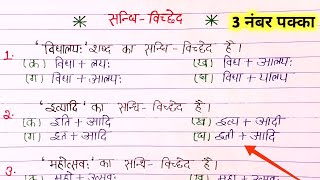 सन्धि-विच्छेद
3 नंबर पक्का
1. 'विद्यालयः' शब्द का सन्धि-विच्छेद है।
(क) विधा + लयः (ख) विध + आलयः
(ग) विधा + आलयः (घ) विध + यालय
2. 'इत्यादि' का सन्धि-विच्छेद है।
(क) इति + आदि (ख) इत्य + आदी
(ग) इत + आदि (घ) इती + आदि
3. 'महोत्सवः' का सन्धि-विच्छेद है।
(क) महा + उत्सवः (ख) मही + उत्सव